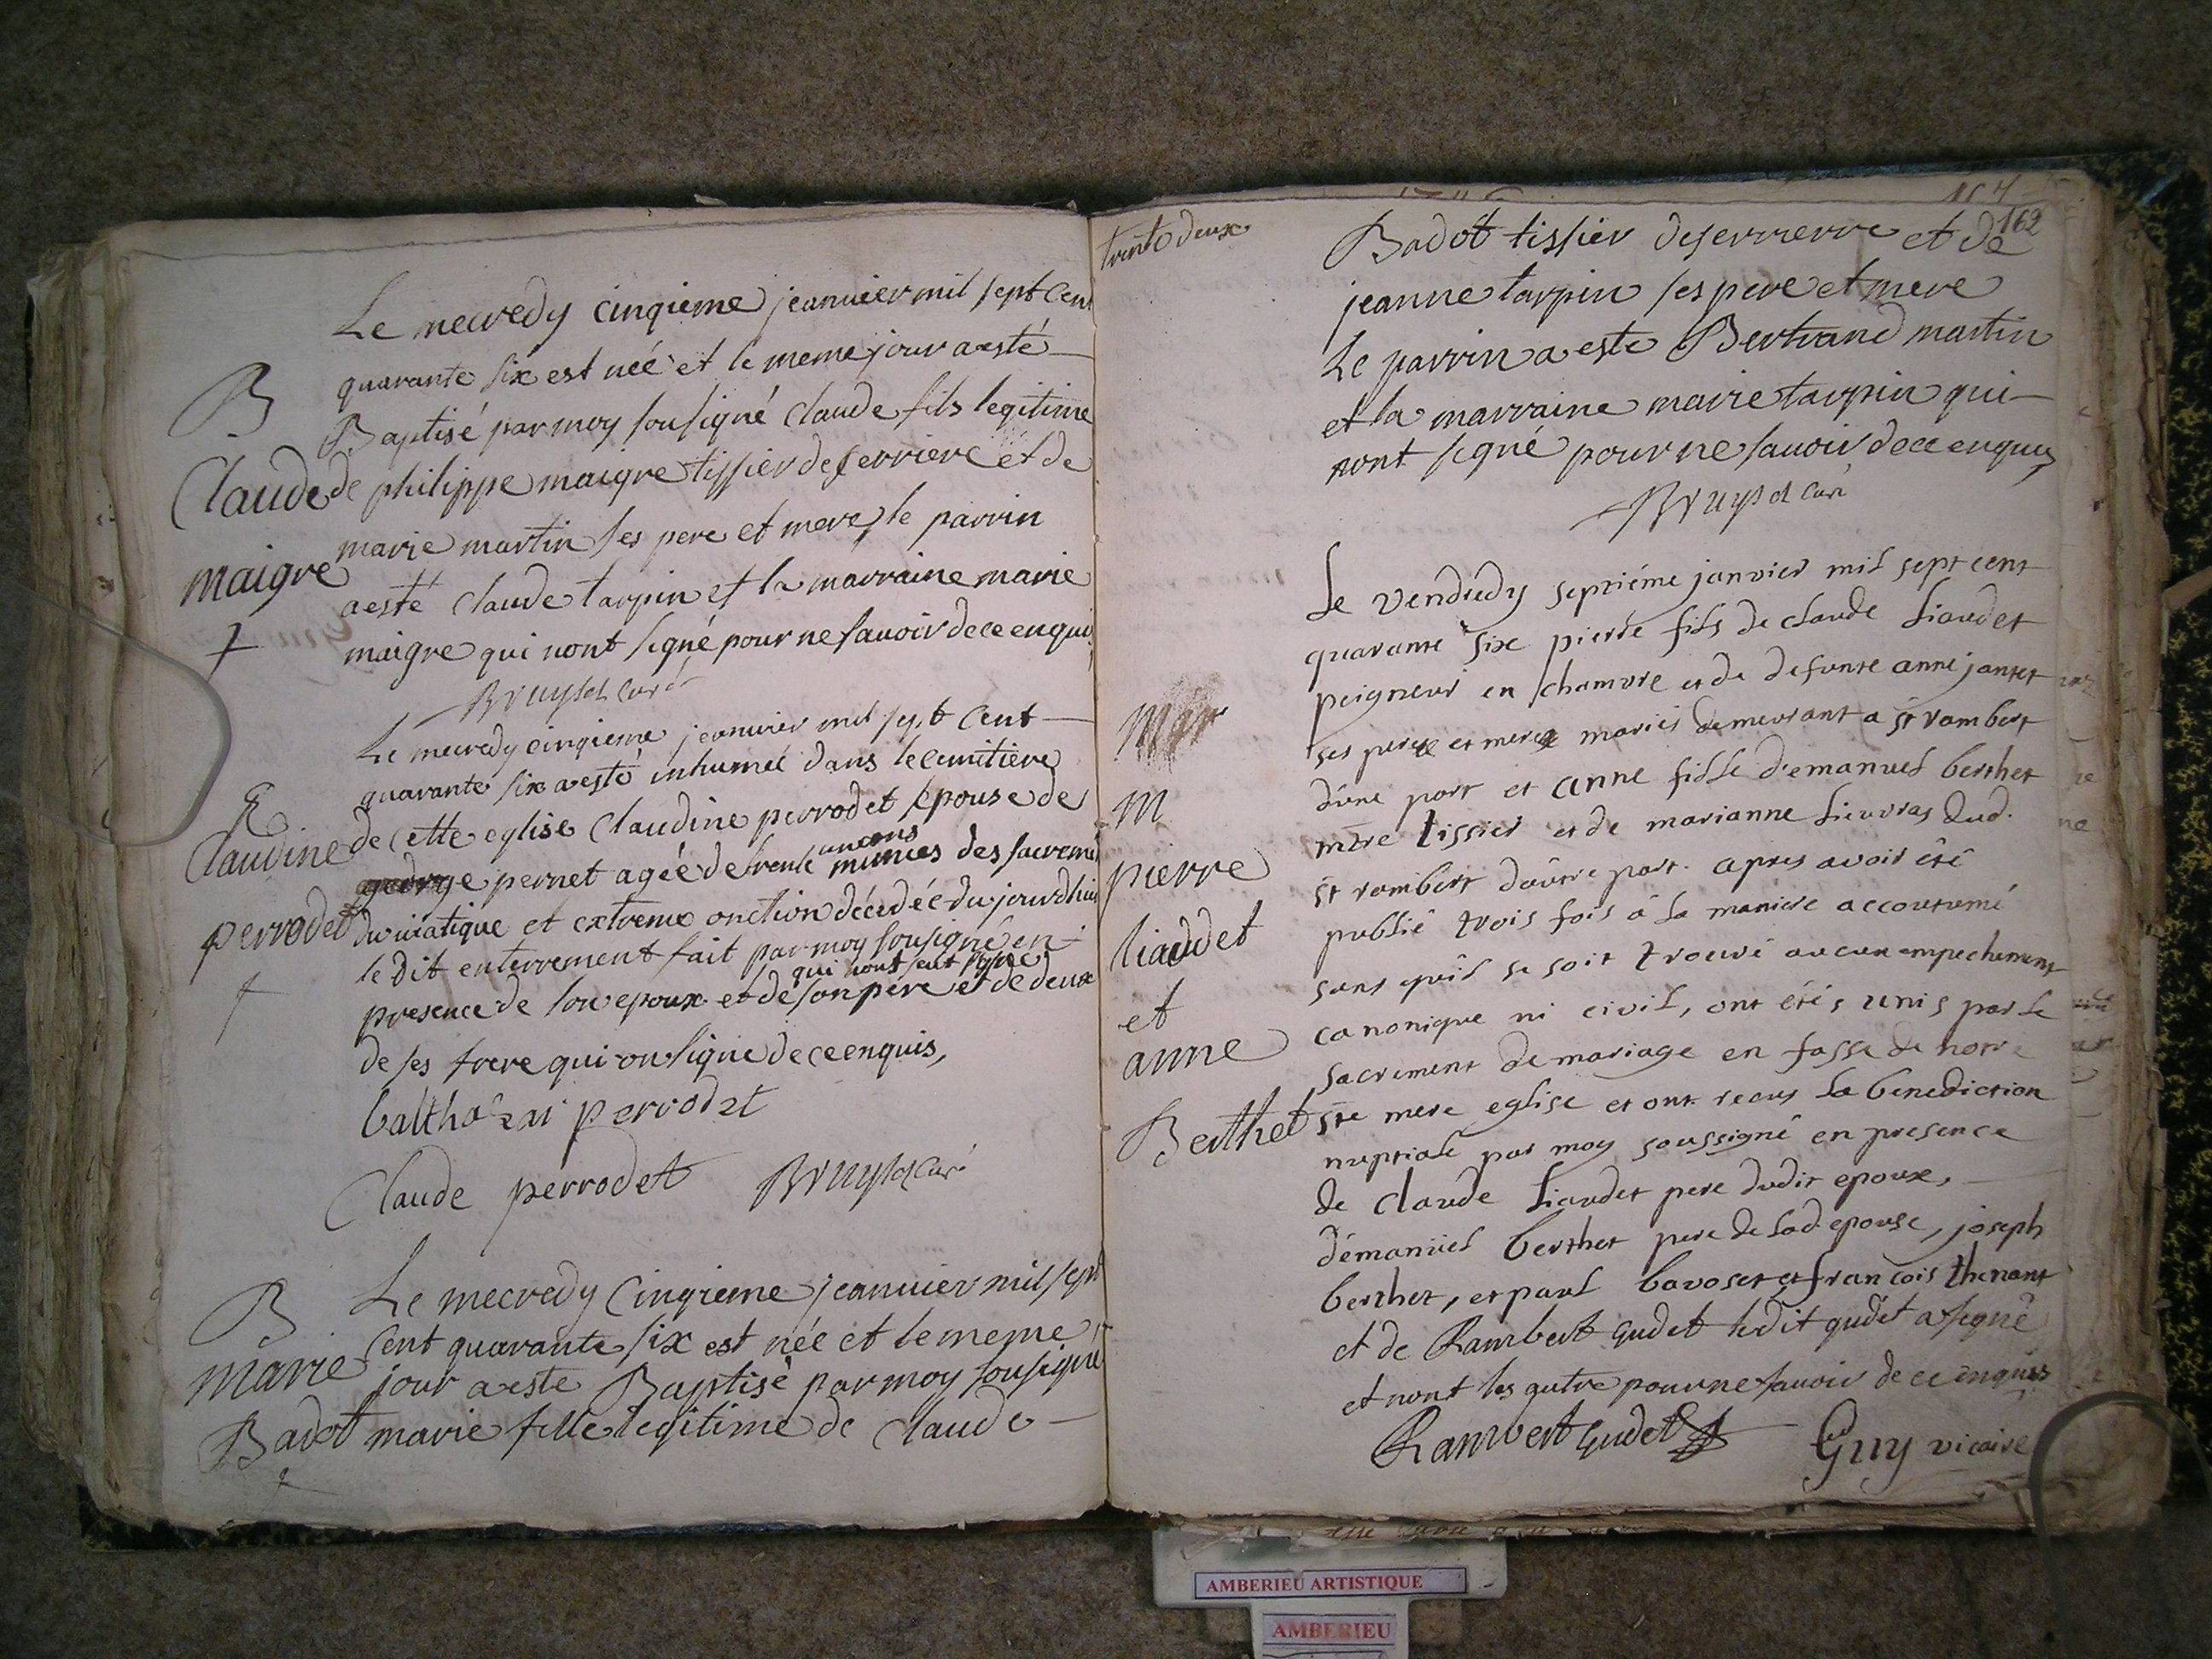 Le mecredy cinqieme jeanvier mil sept cent
quarante six est néé et le meme jour aesté
B
Baptisé par moy sousigné claude fils legitime
Claude
de philippe maigre tissier de serriere et de
maigre
marie martin ses pere et mere le parrin
aesté claude tarpin et la marraine marie
maigre qui nont signé pour ne savoir de ce enquis
Bruyset curé
Le mecredy cinqieme jeanvier mil sept cent
quarante six aesté inhumeé dans le cimitiere
E
Claudine
perrodet
de cette eglise claudine perrodet epouse de
george pernet ageé de trente un ans munies des sacremens
du viatique et extreme onction décédéé du jourdhui
le dit enterrement fait par moy sousigné en
presence de son epoux et de son pere qui nont seut signé et de deux
de ses frere qui on signe de ce enquis,
balthazar perrodet
Claude perrodet Bruyset curé
B
marie
Badot
Le mecredy cinqieme jeanvier mil sept
cent quarante six est néé et le meme
jour aeste Baptisé par moy sousigné
marie fille legitime de claude
trente deux
162
Badot tissier de serrierre et de
jeanne tarpin ses pere et mere
Le parrin a este Bertrand martin
et la marraine marie tarpin qui
nont signé pour ne savoir de ce enquis
Bruyset curé
Mar
M
pierre
liaudet
et
anne
Berthet
Le vendredy septiéme janvier mil sept cent
quarante six pierre fils de claude Liaudet
peigneur en chamvre et de defunte anne jantet
ses pere et mere mariés demeurant a st rambert
d'une part et anne fille d'emanuel berthet
mtre tissier et de marianne Lieuvras dud.
st rambert d'autre part. apres avoir été
publié trois fois à la maniere accoutumé
sans qu'il se soit trouvé aucun empechement
canonique ni civil, ont étés unis par le
sacrement de mariage en fasse de notre
ste mere eglise et ont recus la benediction
nuptiale par moy soussigné en presence
de claude Liaudet pere dudit epoux,
d'émanuel berthet pere de lad epouse, joseph
berthet, et paul bavoset et francois thenant
et de Rambert gudet ledit gudet a signé
et nont les autre pour ne savoir de ce enquis
Rambert gudet Guy vicaire
AMBERIEU ARTISTIQUE
AMBERIEU